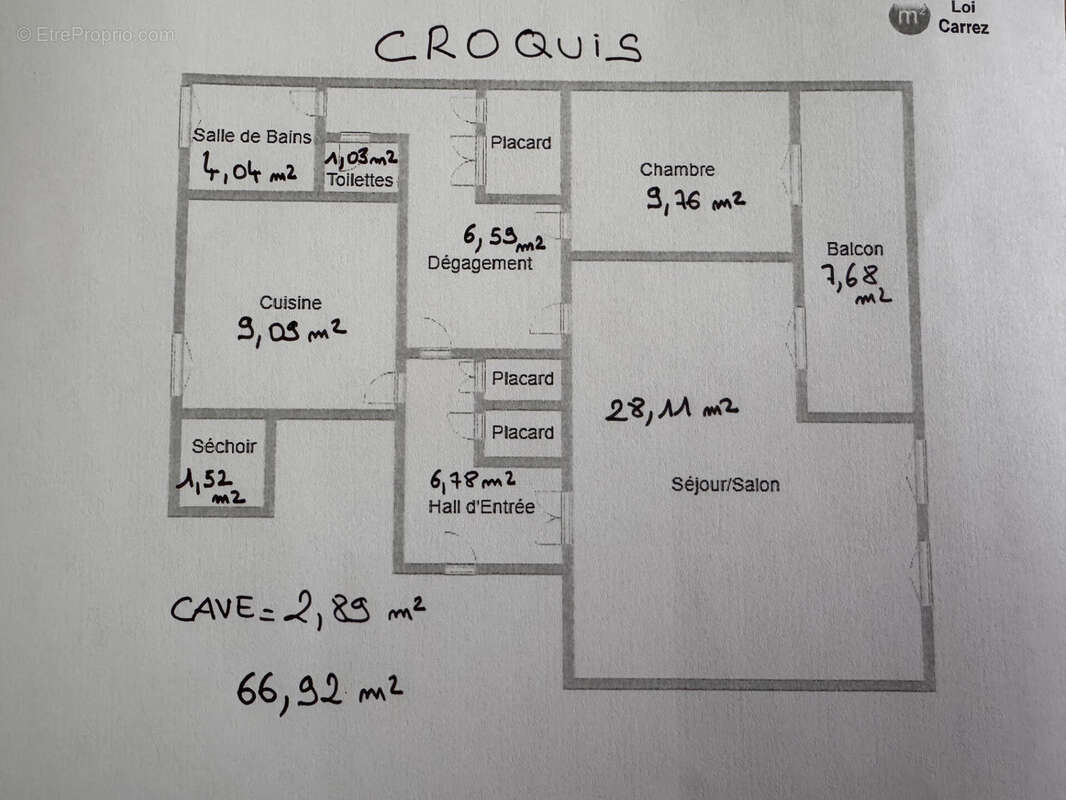 © EtreProprio.com
m²
Loi
Carrez
CROQUIS
Salle de Bains
4,04 m²
1,03 m²
Toilettes
Placard
Chambre
9,76 m²
6,59 m²
Dégagement
Balcon
7,68
m²
Cuisine
9,09 m²
Placard
Placard
28,11 m²
Séchoir
1,52
m²
6,78 m²
Hall d'Entrée
Séjour/Salon
CAVE = 2,89 m²
66,92 m²